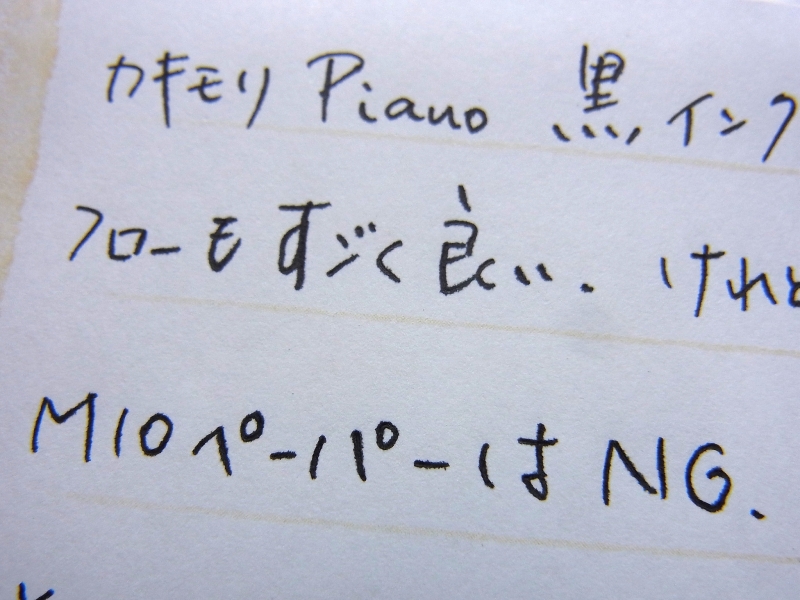 カキモリ Piano 黒 インク
フローもすごく良い. けれど
M10ペーパーは NG.